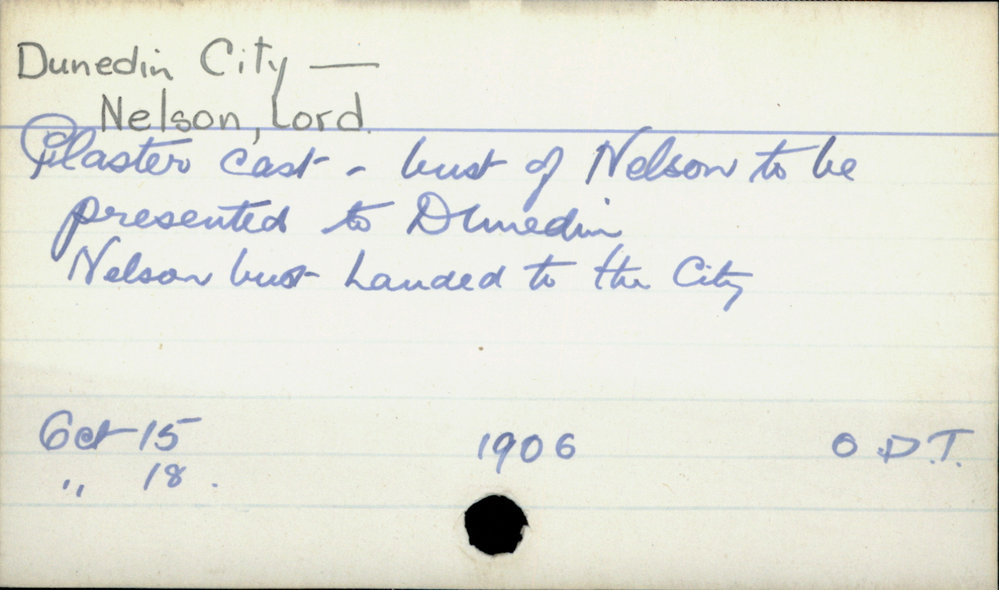 Dunedin City —
Nelson, Lord.
Plaster cast - bust of Nelson to be
presented to Dunedin
Nelson bust handed to the City
Oct 15 1906 O.D.T.
" 18.